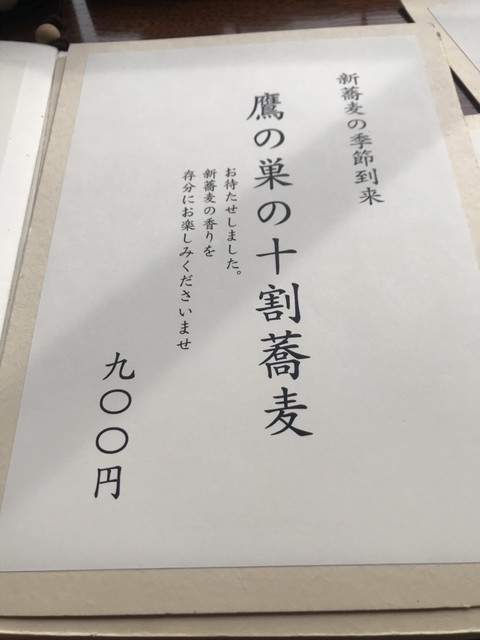 新蕎麦の季節到来
鷹の巣の十割蕎麦
お待たせしました。
新蕎麦の香りを
存分にお楽しみくださいませ
九〇〇円